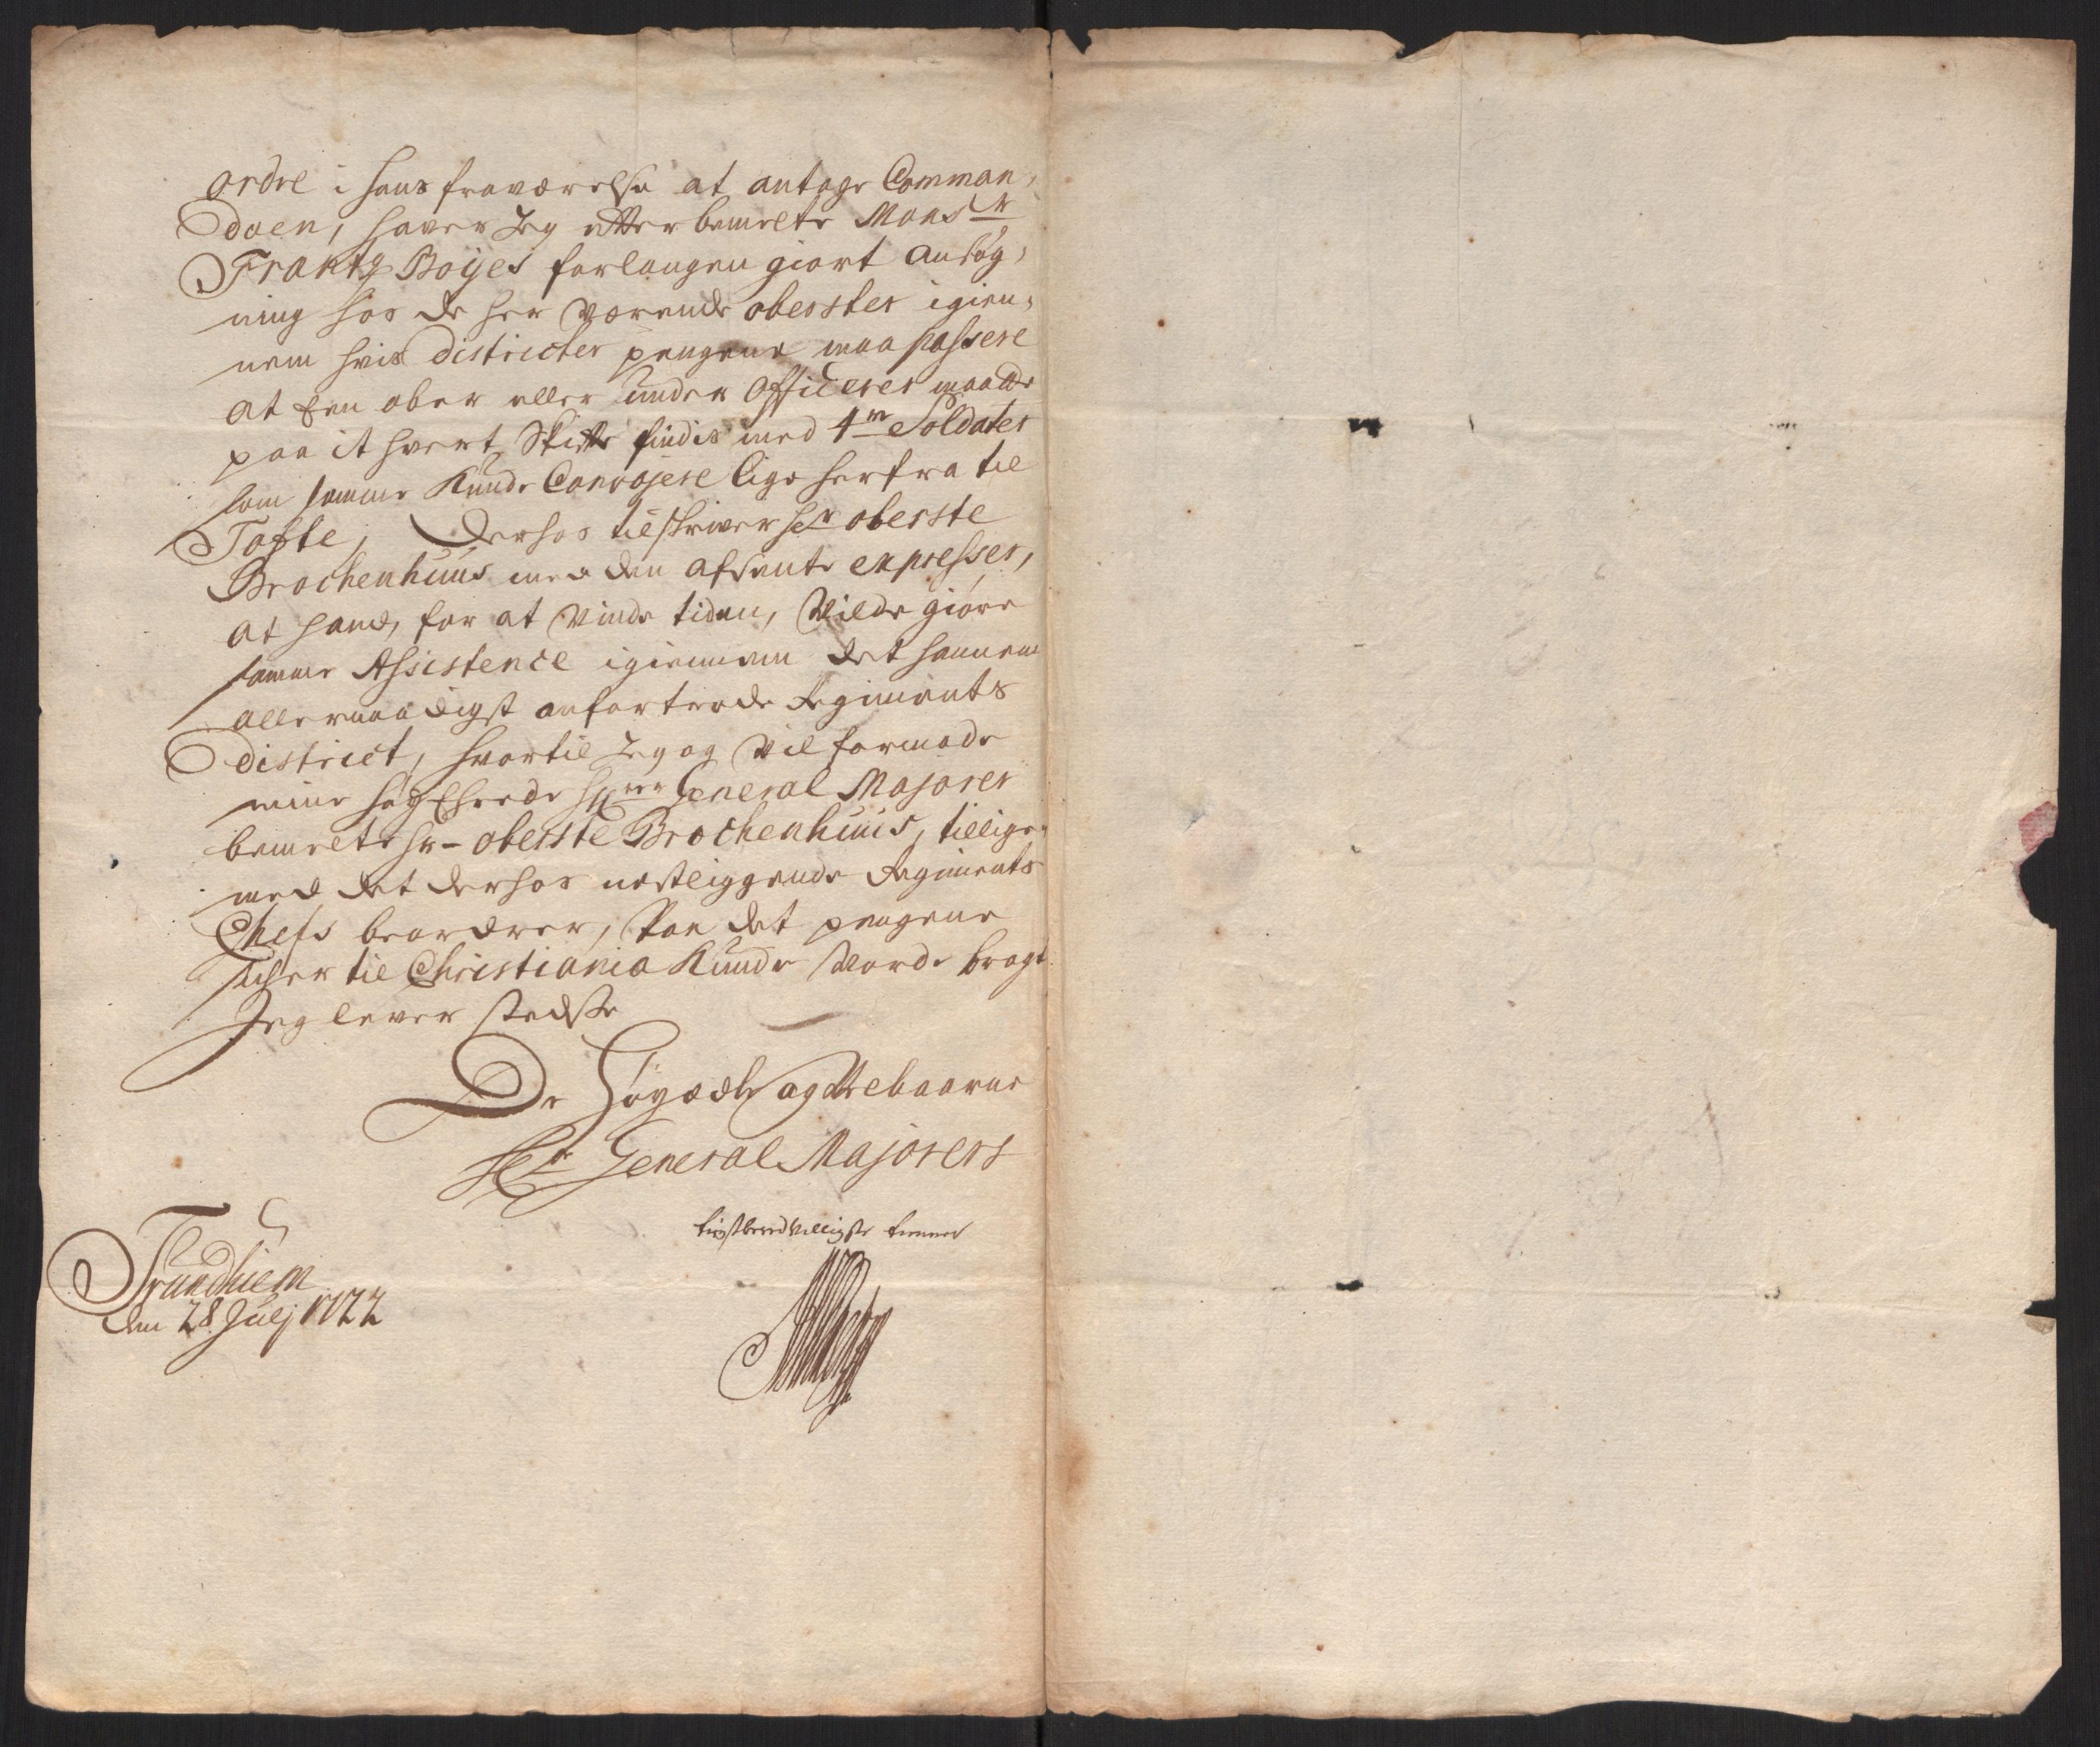 ordre i hans fraværelse at antage Comman,
doen, haver Jeg efter bemelte Mons:r
Frantz Boyes forlangen giort ansøg,
ning hos de her værende oberster igien,
nem hvis districter pengene maa passere
at Een ober eller under Officerer maatte
paa it hvert Skiffte findis med 4re Soldater
som samme Kunde Convojere lige herfra til
Tofte, Derhos tilskriver hr oberste
Brochenhuus med den afsente expresser,
at hand, for at Vinde tiden, Vilde giøre
samme Assistence igiennem det hannem
allernaadigst anfortroede Regiments
district, hvortil Jeg og Vil formode
mine høyEhrede Hrer General Majorer
bemelte hr- oberste Brochenhuus, tillige
med det derhos nestliggende Regiments
Chefs beordrer, Paa det pengene
sicher til Christiania Kunde Vorde bragt
Jeg lever stedse
De Høyædle og Velbaarne
Hr General Majorers
tienstberedvilligste tienner
Trundhiem
den 28 Julj 1722